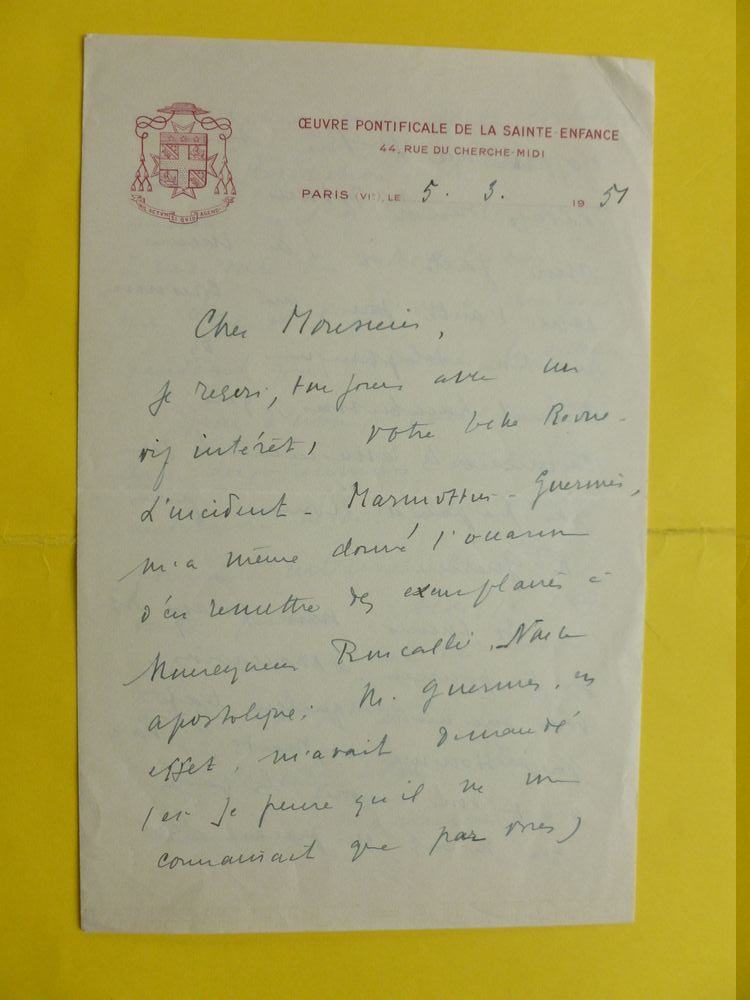 ŒUVRE PONTIFICALE DE LA SAINTE-ENFANCE
44, RUE DU CHERCHE-MIDI
PARIS (VIᵉ), LE 5. 3. 1951
NIL ACTUM SI QUID AGENDI
Cher Monsieur,
Je reçois, toujours avec un
vif intérêt, votre belle Revue.
L'incident - Marmottin - Guermès,
m'a même donné l'occasion
d'en remettre des exemplaires à
Monseigneur Roncalli, Nonce
apostolique. M. Guermès, en
effet, m'avait demandé
(et je pense qu'il ne me
connaissait que par vous)